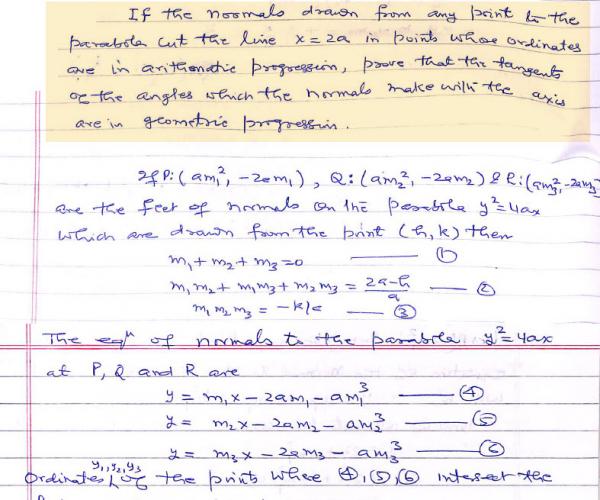 If the normals drawn from any point to the
parabola cut the line x = 2a in points whose ordinates
are in arithmetic progression, prove that the tangents
of the angles which the normals make with the axis
are in geometric progression.
If P: (am₁², -2am₁), Q: (am₂², -2am₂) & R: (am₃², -2am₃)
are the feet of normals on the parabola y² = 4ax
which are drawn from the point (h, k) then
m₁ + m₂ + m₃ = 0 ——— ①
m₁m₂ + m₁m₃ + m₂m₃ = (2a-h)/a — ②
m₁m₂m₃ = -k/a — ③
The eqⁿ of normals to the parabola y² = 4ax
at P, Q and R are
y = m₁x - 2am₁ - am₁³ ——— ④
y = m₂x - 2am₂ - am₂³ ——— ⑤
y = m₃x - 2am₃ - am₃³ ——— ⑥
Ordinates y₁, y₂, y₃ of the points where ④, ⑤, ⑥ intersect the